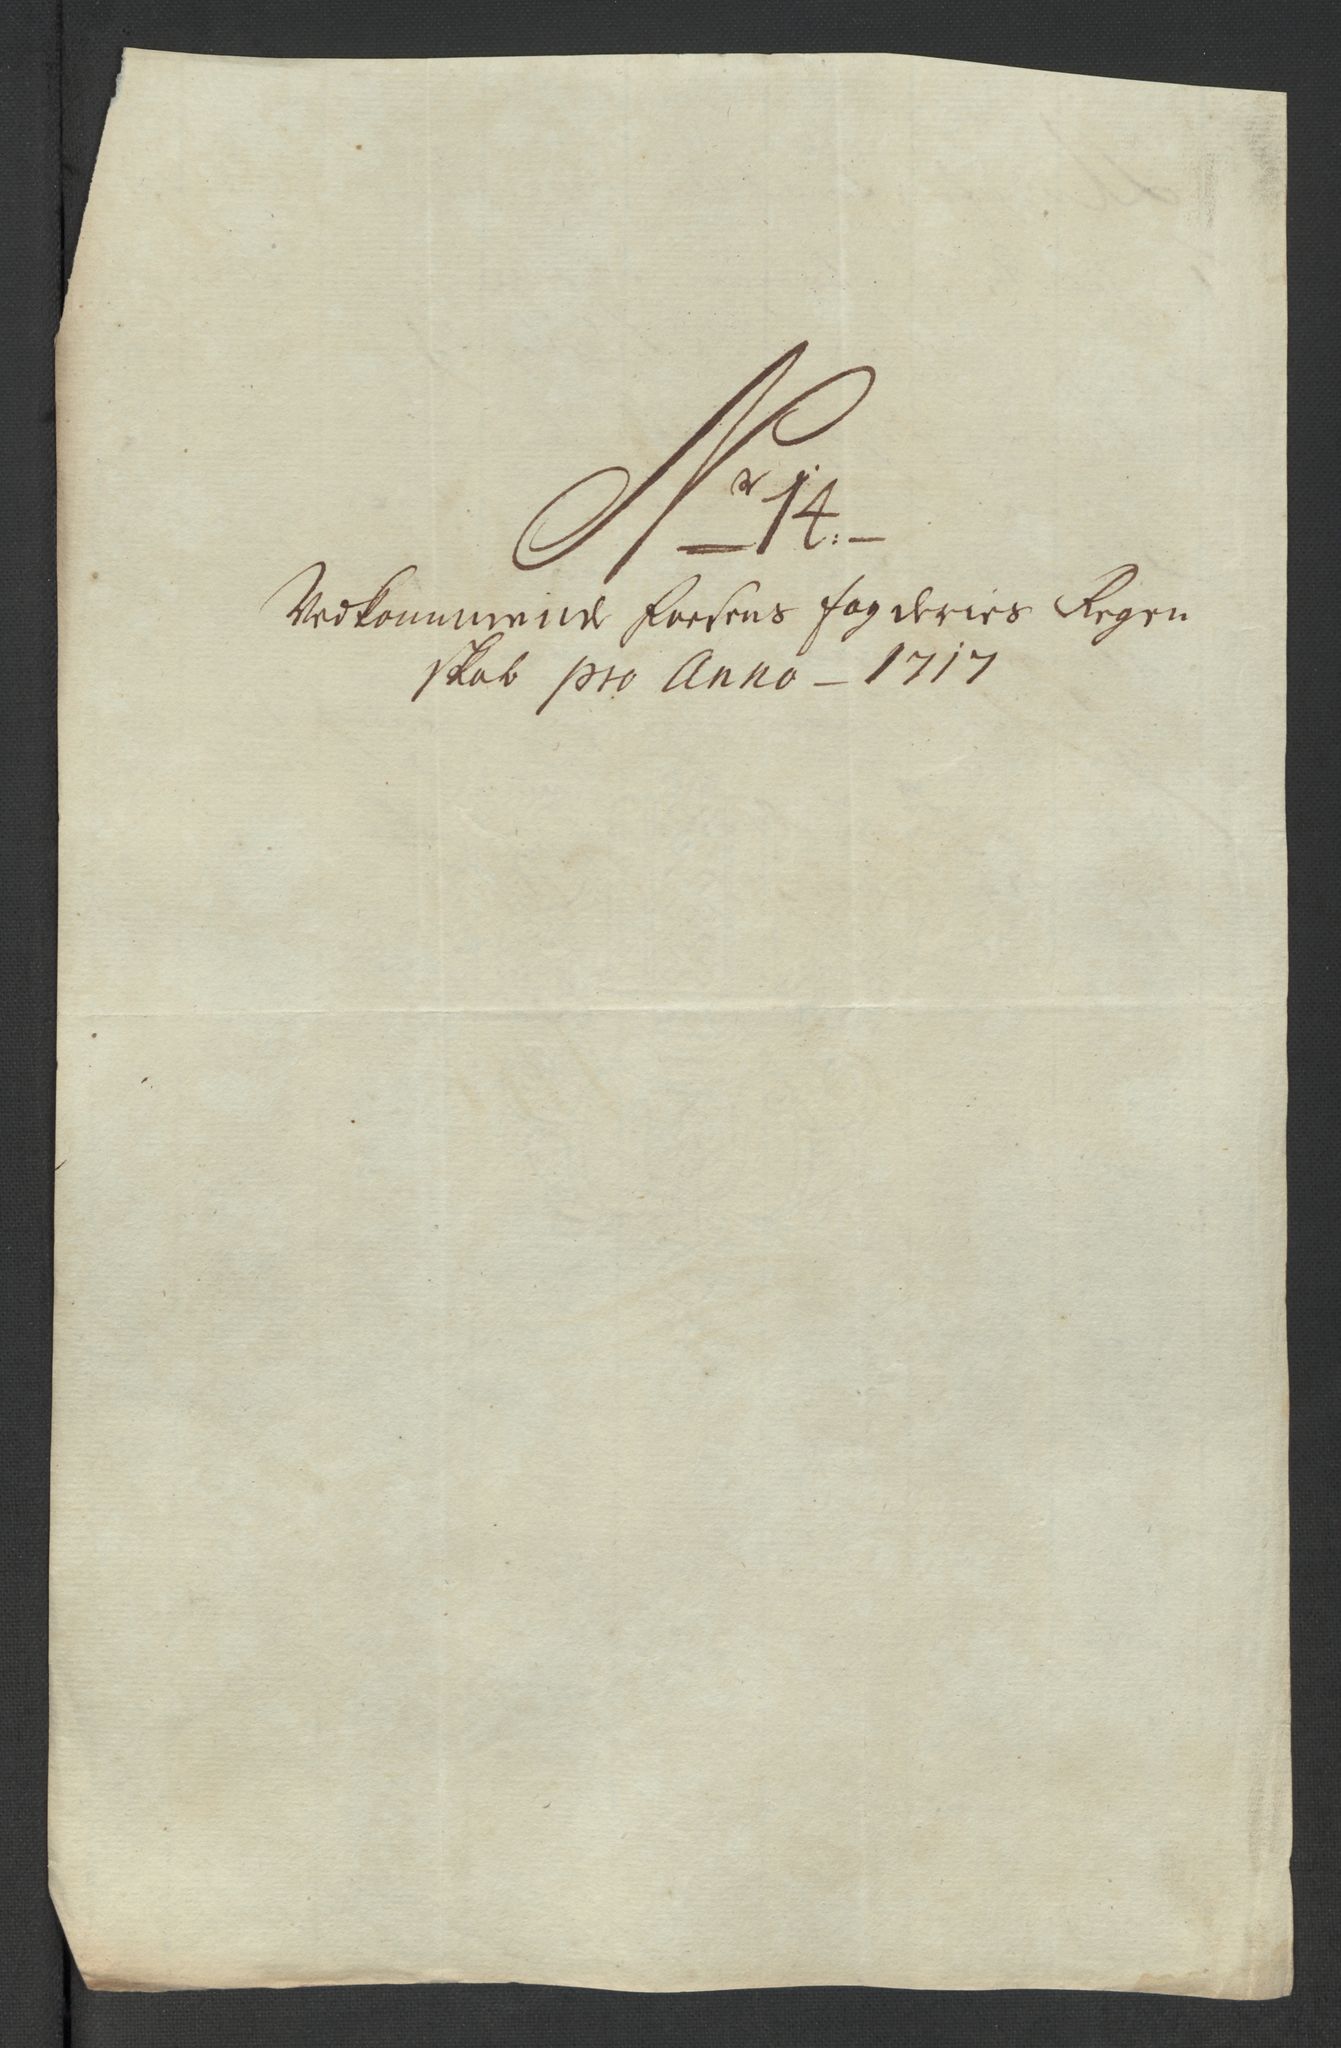 Nr 14.
Vedkommende Foesens fogderies Regen
skab pro Anno – 1717